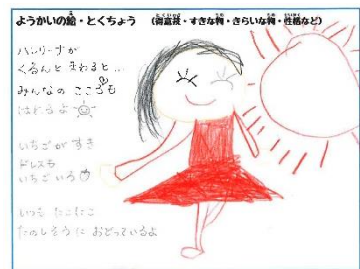 ようかいの絵・とくちょう （得意技・すきな物・きらいな物・性格など）
くるんと まわると…
みんなの こころも
はれるよ
いちごが すき
ドレスも
いちごいろ
いつも にこにこ
たのしそうに おどっているよ